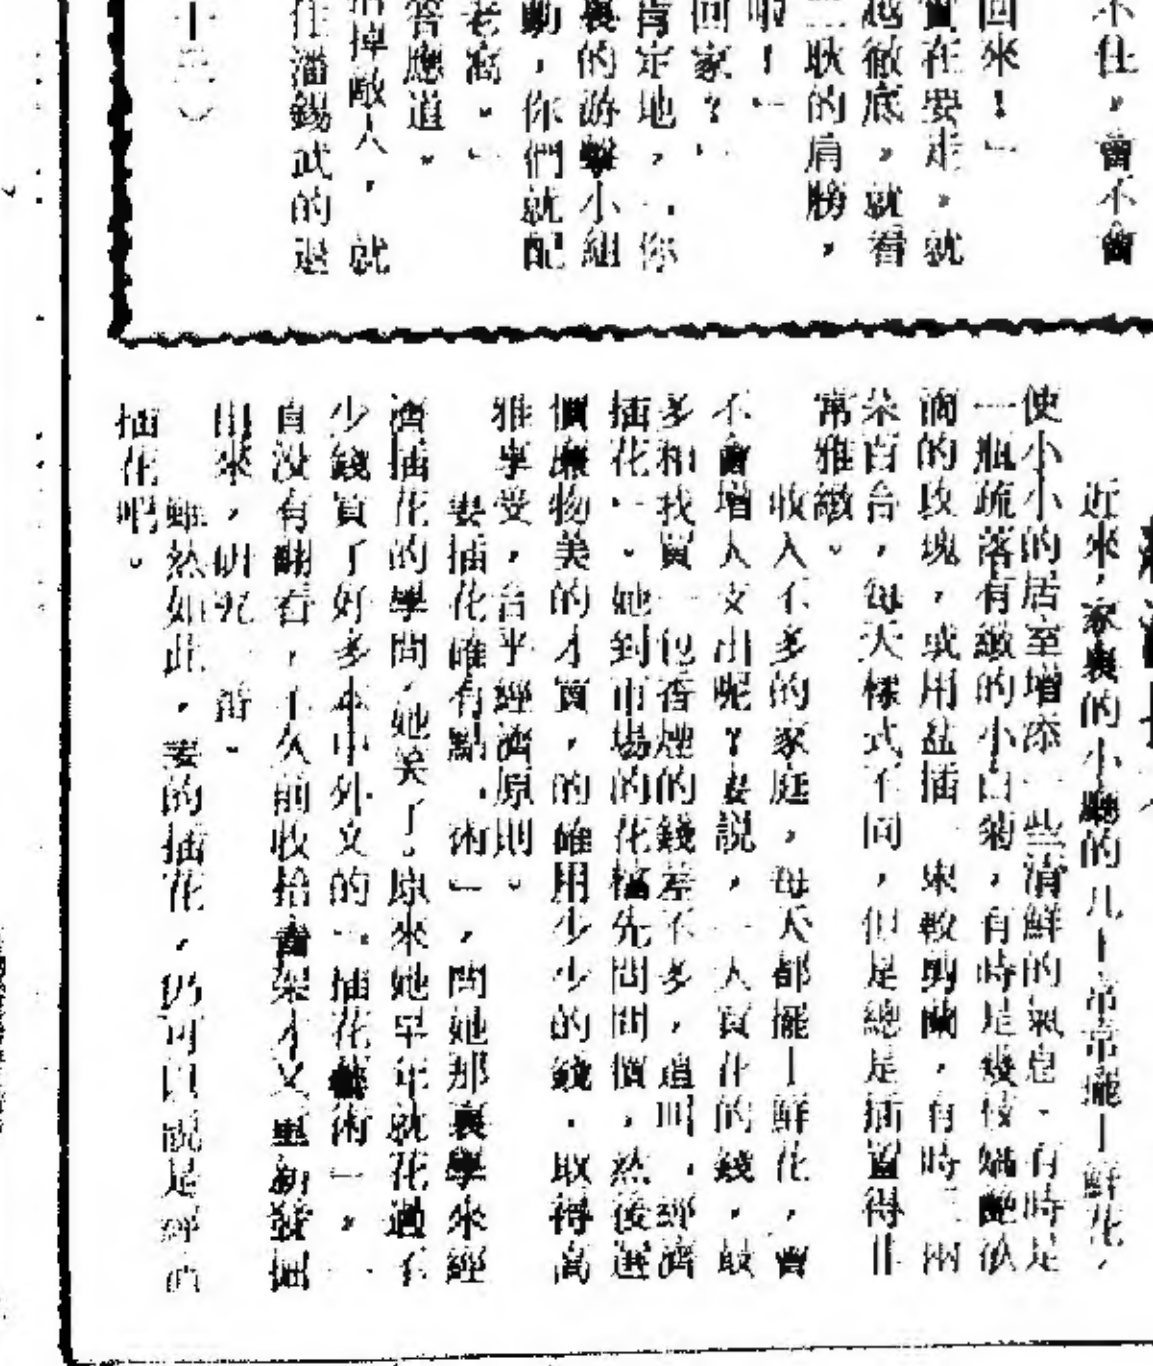 不住，會不會
回來！」
實在要走，就
越徹底，就看
二耿的肩膀，
啦！」
回家？」
肯定地，「你
裏的游擊小組
動，你們就配
老高。」
答應道。
掉敵人，就
住潘錫武的退
近來，家裏的小廳的几上常常擺上鮮花，
使小小的居室增添一些清鮮的氣息。有時是
一瓶疏落有緻的小白菊，有時是幾枝嬌艷欲
滴的玫瑰，或用盆插一束較剪蘭，有時三兩
朵百合，每天樣式不同，但是總是插置得非
常雅緻。
收入不多的家庭，每天都擺上鮮花，會
不會增大支出呢？妻説，一天買花的錢，最
多和我買一包香煙的錢差不多，這叫「經濟
插花」。她到市場的花檔先問問價，然後選
價廉物美的才買，的確用少少的錢，取得高
雅享受，合乎經濟原則。
妻插花確有點「術」，問她那裏學來經
濟插花的學問，她笑了。原來她早年就花過不
少錢買了好多本中外文的「插花藝術」，一
自没有翻看，不久前收拾書架才又重新發掘
出來，研究一番。
雖然如此，妻的插花，仍可以説是經濟
插花吧。